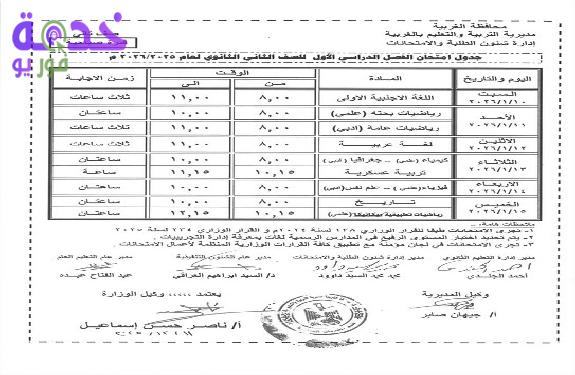 محافظة الغربية
مديرية التربية والتعليم بالغربية
إدارة شئون الطلبة والامتحانات
خدمة
فور يو
جدول امتحان الفصل الدراسي الأول للصف الثاني الثانوي لعام ٢٠٢٦/٢٠٢٥ م
اليوم والتاريخ المادة الوقت زمن الاجابة
من الى
السبت ٢٠٢٦/١/١٠ اللغة الاجنبية الاولى ٨,٠٠ ١١,٠٠ ثلاث ساعات
الأحد ٢٠٢٦/١/١١ رياضيات بحته (علمى) ٨,٠٠ ١٠,٠٠ ساعتان
رياضيات عامة (أدبى) ٨,٠٠ ١١,٠٠ ثلاث ساعات
الاثنين ٢٠٢٦/١/١٢ لغة عربية ٨,٠٠ ١١,٠٠ ثلاث ساعات
الثلاثاء ٢٠٢٦/١/١٣ كيمياء (علمى) - جغرافيا (أدبى) ٨,٠٠ ١٠,٠٠ ساعتان
تربية عسكرية ١٠,١٥ ١١,١٥ ساعة
الاربعاء ٢٠٢٦/١/١٤ فيزياء (علمى) - علم نفس (أدبى) ٨,٠٠ ١٠,٠٠ ساعتان
الخميس ٢٠٢٦/١/١٥ تاريخ ٨,٠٠ ١٠,٠٠ ساعتان
رياضيات تطبيقية ميكانيكا (علمى) ١٠,١٥ ١٢,١٥ ساعتان
ملاحظات هامة :
١- تجرى الامتحانات طبقا للقرار الوزارى ١٣٨ لسنة ٢٠٢٤م و القرار الوزارى ٢٣٤ لسنة ٢٠٢٥
٢- يتم تحديد اختبار المستوى الرفيع فى المدارس الرسمية لغات بمعرفة إدارة التجريبيات.
٣- تجرى الامتحانات فى لجان مؤمنة مع تطبيق كافة القرارات الوزارية المنظمة لأعمال الامتحانات.
مدير إدارة التعليم الثانوى مدير إدارة شئون الطلبة والامتحانات مدير عام الشئون التنفيذية مدير عام التعليم العام
أحمد الجندى محمد السيد داوود د/ السيد ابراهيم العراقى عبد الفتاح عبده
وكيل المديرية
أ/ جيهان صابر
يعتمد ،،،،، وكيل الوزارة
أ/ ناصر حسن إسماعيل